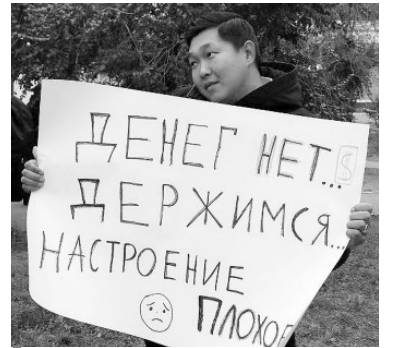 ДЕНЕГ НЕТ... $
ДЕРЖИМСЯ...
НАСТРОЕНИЕ
ПЛОХОЕ